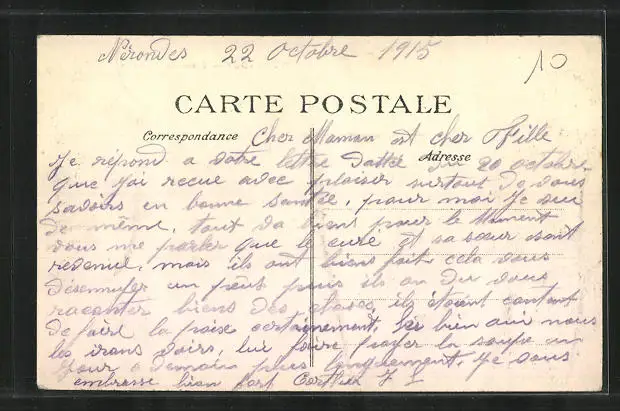 Nérondes 22 Octobre 1915
10
CARTE POSTALE
Correspondance Cher Maman est cher Fille
Adresse
Je répond a votre lettre dattée du 20 octobre
que j'ai recue avec plaisir surtout de vous
savoirs en bonne santée, pour moi je sui
de même, tout va biens pour le Moment
vous me parler que le cure et sa sœur sont
revenue, mais ils ont biens fait cela vous
désennuler un peut puis ils on du vous
raconter biens des choses, ils étaient contant
de faire la certainement, bien nous
les irons voirs, lui faire payer la soupe un
jour a demain plus longuement, Je vous
embrasse bien fort